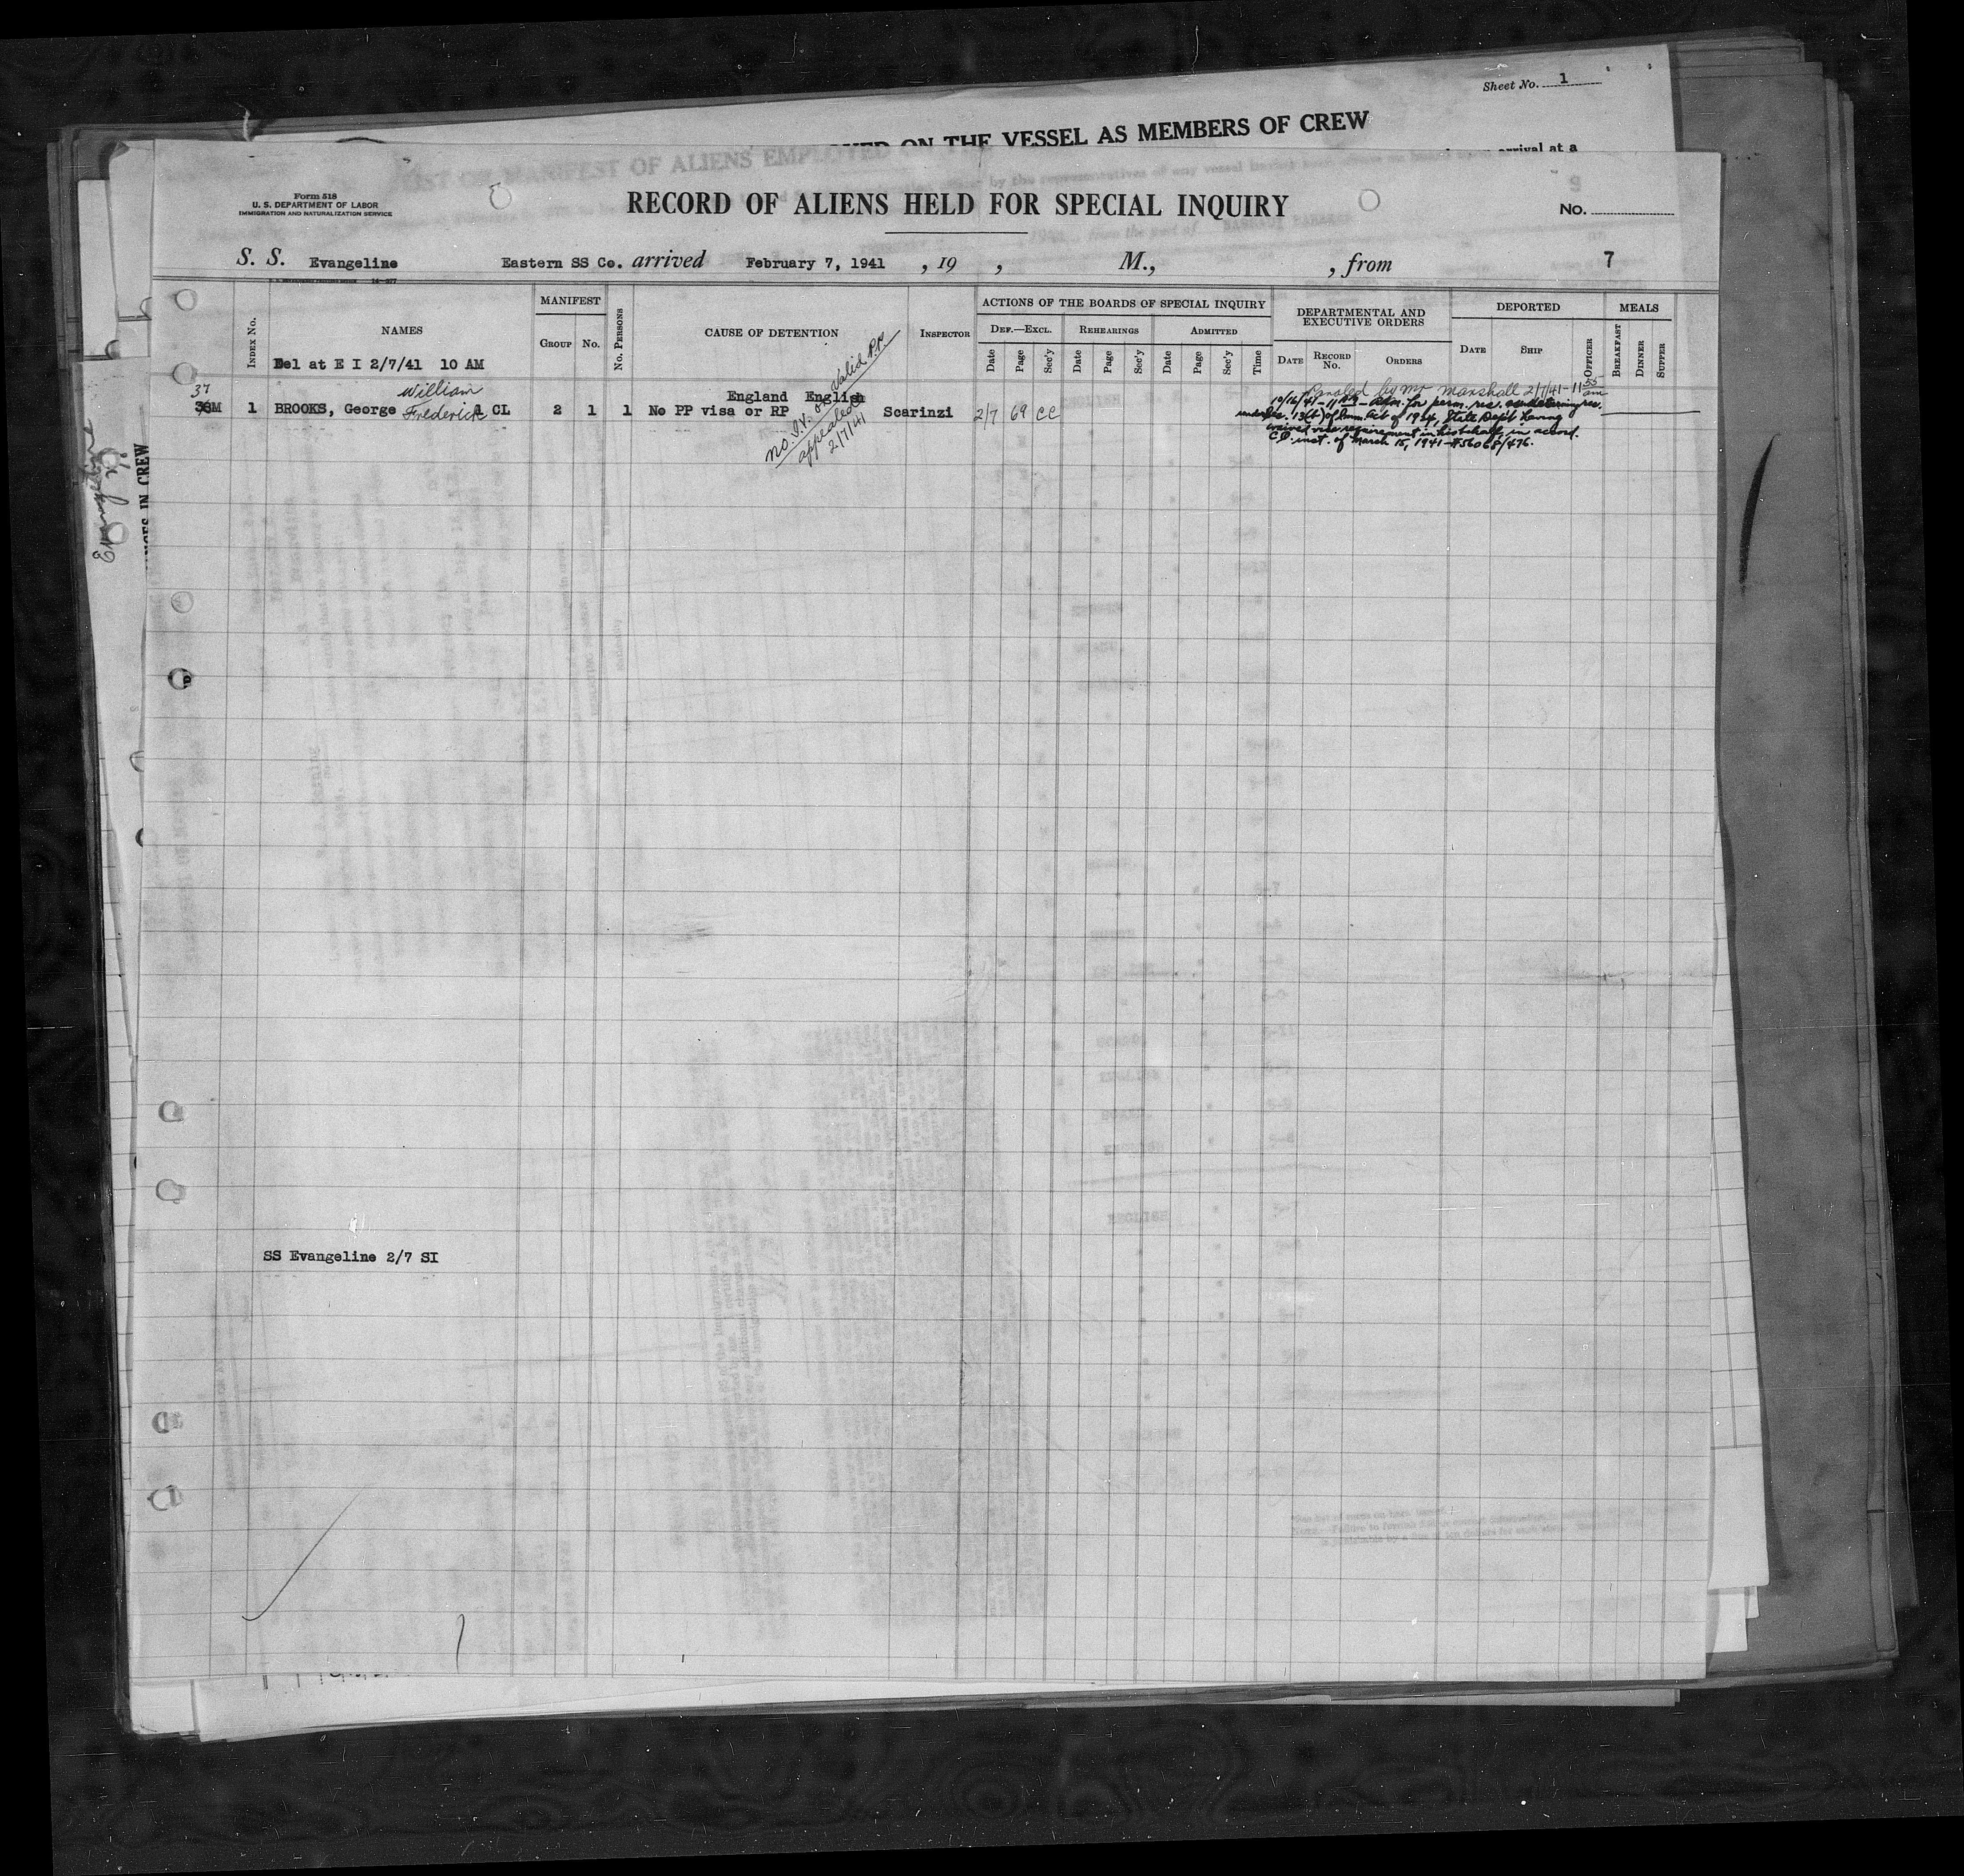 Sheet No. 1
ON THE VESSEL AS MEMBERS OF CREW
arrival at a
LIST OR MANIFEST OF ALIENS EMPLOYED ON THE
Form 518
U. S. DEPARTMENT OF LABOR
IMMIGRATION AND NATURALIZATION SERVICE
RECORD OF ALIENS HELD FOR SPECIAL INQUIRY
No.
S. S. Evangeline Eastern SS Co. arrived February 7, 1941 , 19 , M., , from 7
INDEX No. NAMES MANIFEST GROUP No. No. PERSONS CAUSE OF DETENTION INSPECTOR
ACTIONS OF THE BOARDS OF SPECIAL INQUIRY
DEF.—EXCL. REHEARINGS ADMITTED
Date Page Sec'y Date Page Sec'y Date Page Sec'y Time
DEPARTMENTAL AND EXECUTIVE ORDERS
DATE RECORD No. ORDERS
DEPORTED
DATE SHIP OFFICER
MEALS
BREAKFAST DINNER SUPPER
Del at E I 2/7/41 10 AM
37 William
1 BROOKS, George Frederick CL 2 1 1 No PP visa or RP England English Scarinzi 2/7 69 CC
no I.V. or valid P.P.
appealed
2/7/41
Paroled by Mr Marshall 2/7/41-11 55 am
10/16/41 - adm. for perm. res.
13(b) of Imm. Act of 1924, State Dep't having
waived visa requirement in his behalf in accord.
C.O. inst. of March 15, 1941-#56068/476.
Evangeline
IN CREW
SS Evangeline 2/7 SI